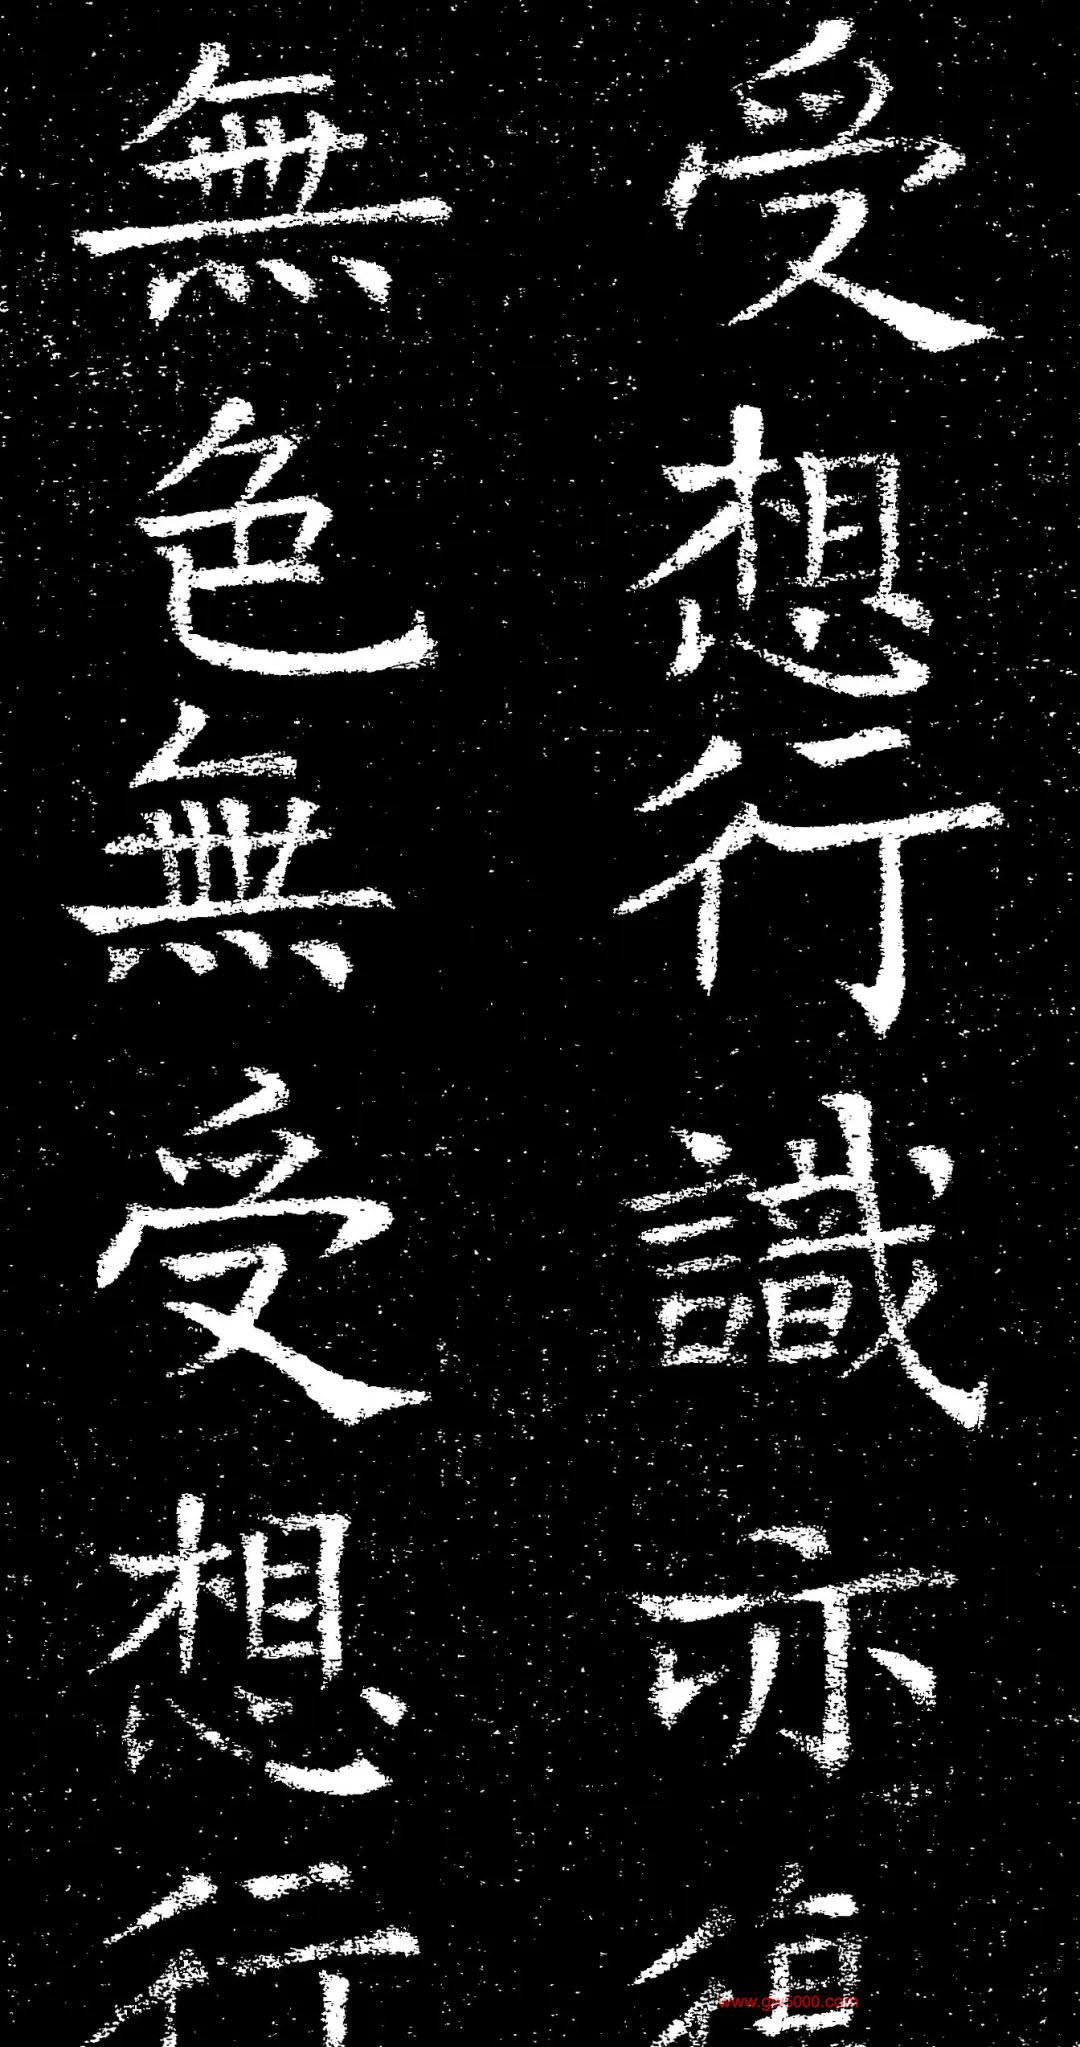 受想行識亦復
無色無受想行
www.gw5000.com